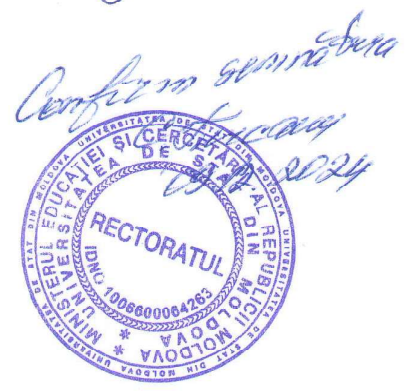 Confirm semnătura
2024
UNIVERSITATEA DE STAT DIN MOLDOVA
MINISTERUL EDUCAȚIEI ȘI CERCETĂRII AL REPUBLICII MOLDOVA
UNIVERSITATEA DE STAT DIN MOLDOVA
RECTORATUL
IDNO 1006600064263